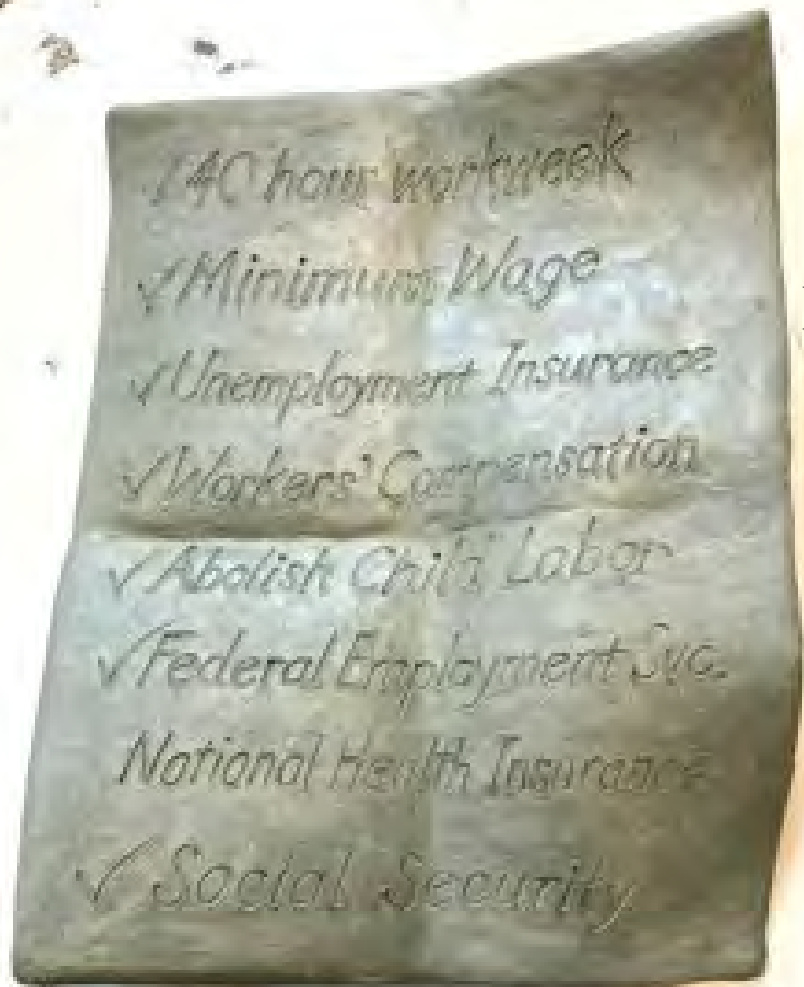 ✓ 40 hour workweek
✓ Minimum Wage
✓ Unemployment Insurance
✓ Workers' Compensation
✓ Abolish Child Labor
✓ Federal Employment Svc.
National Health Insurance
✓ Social Security